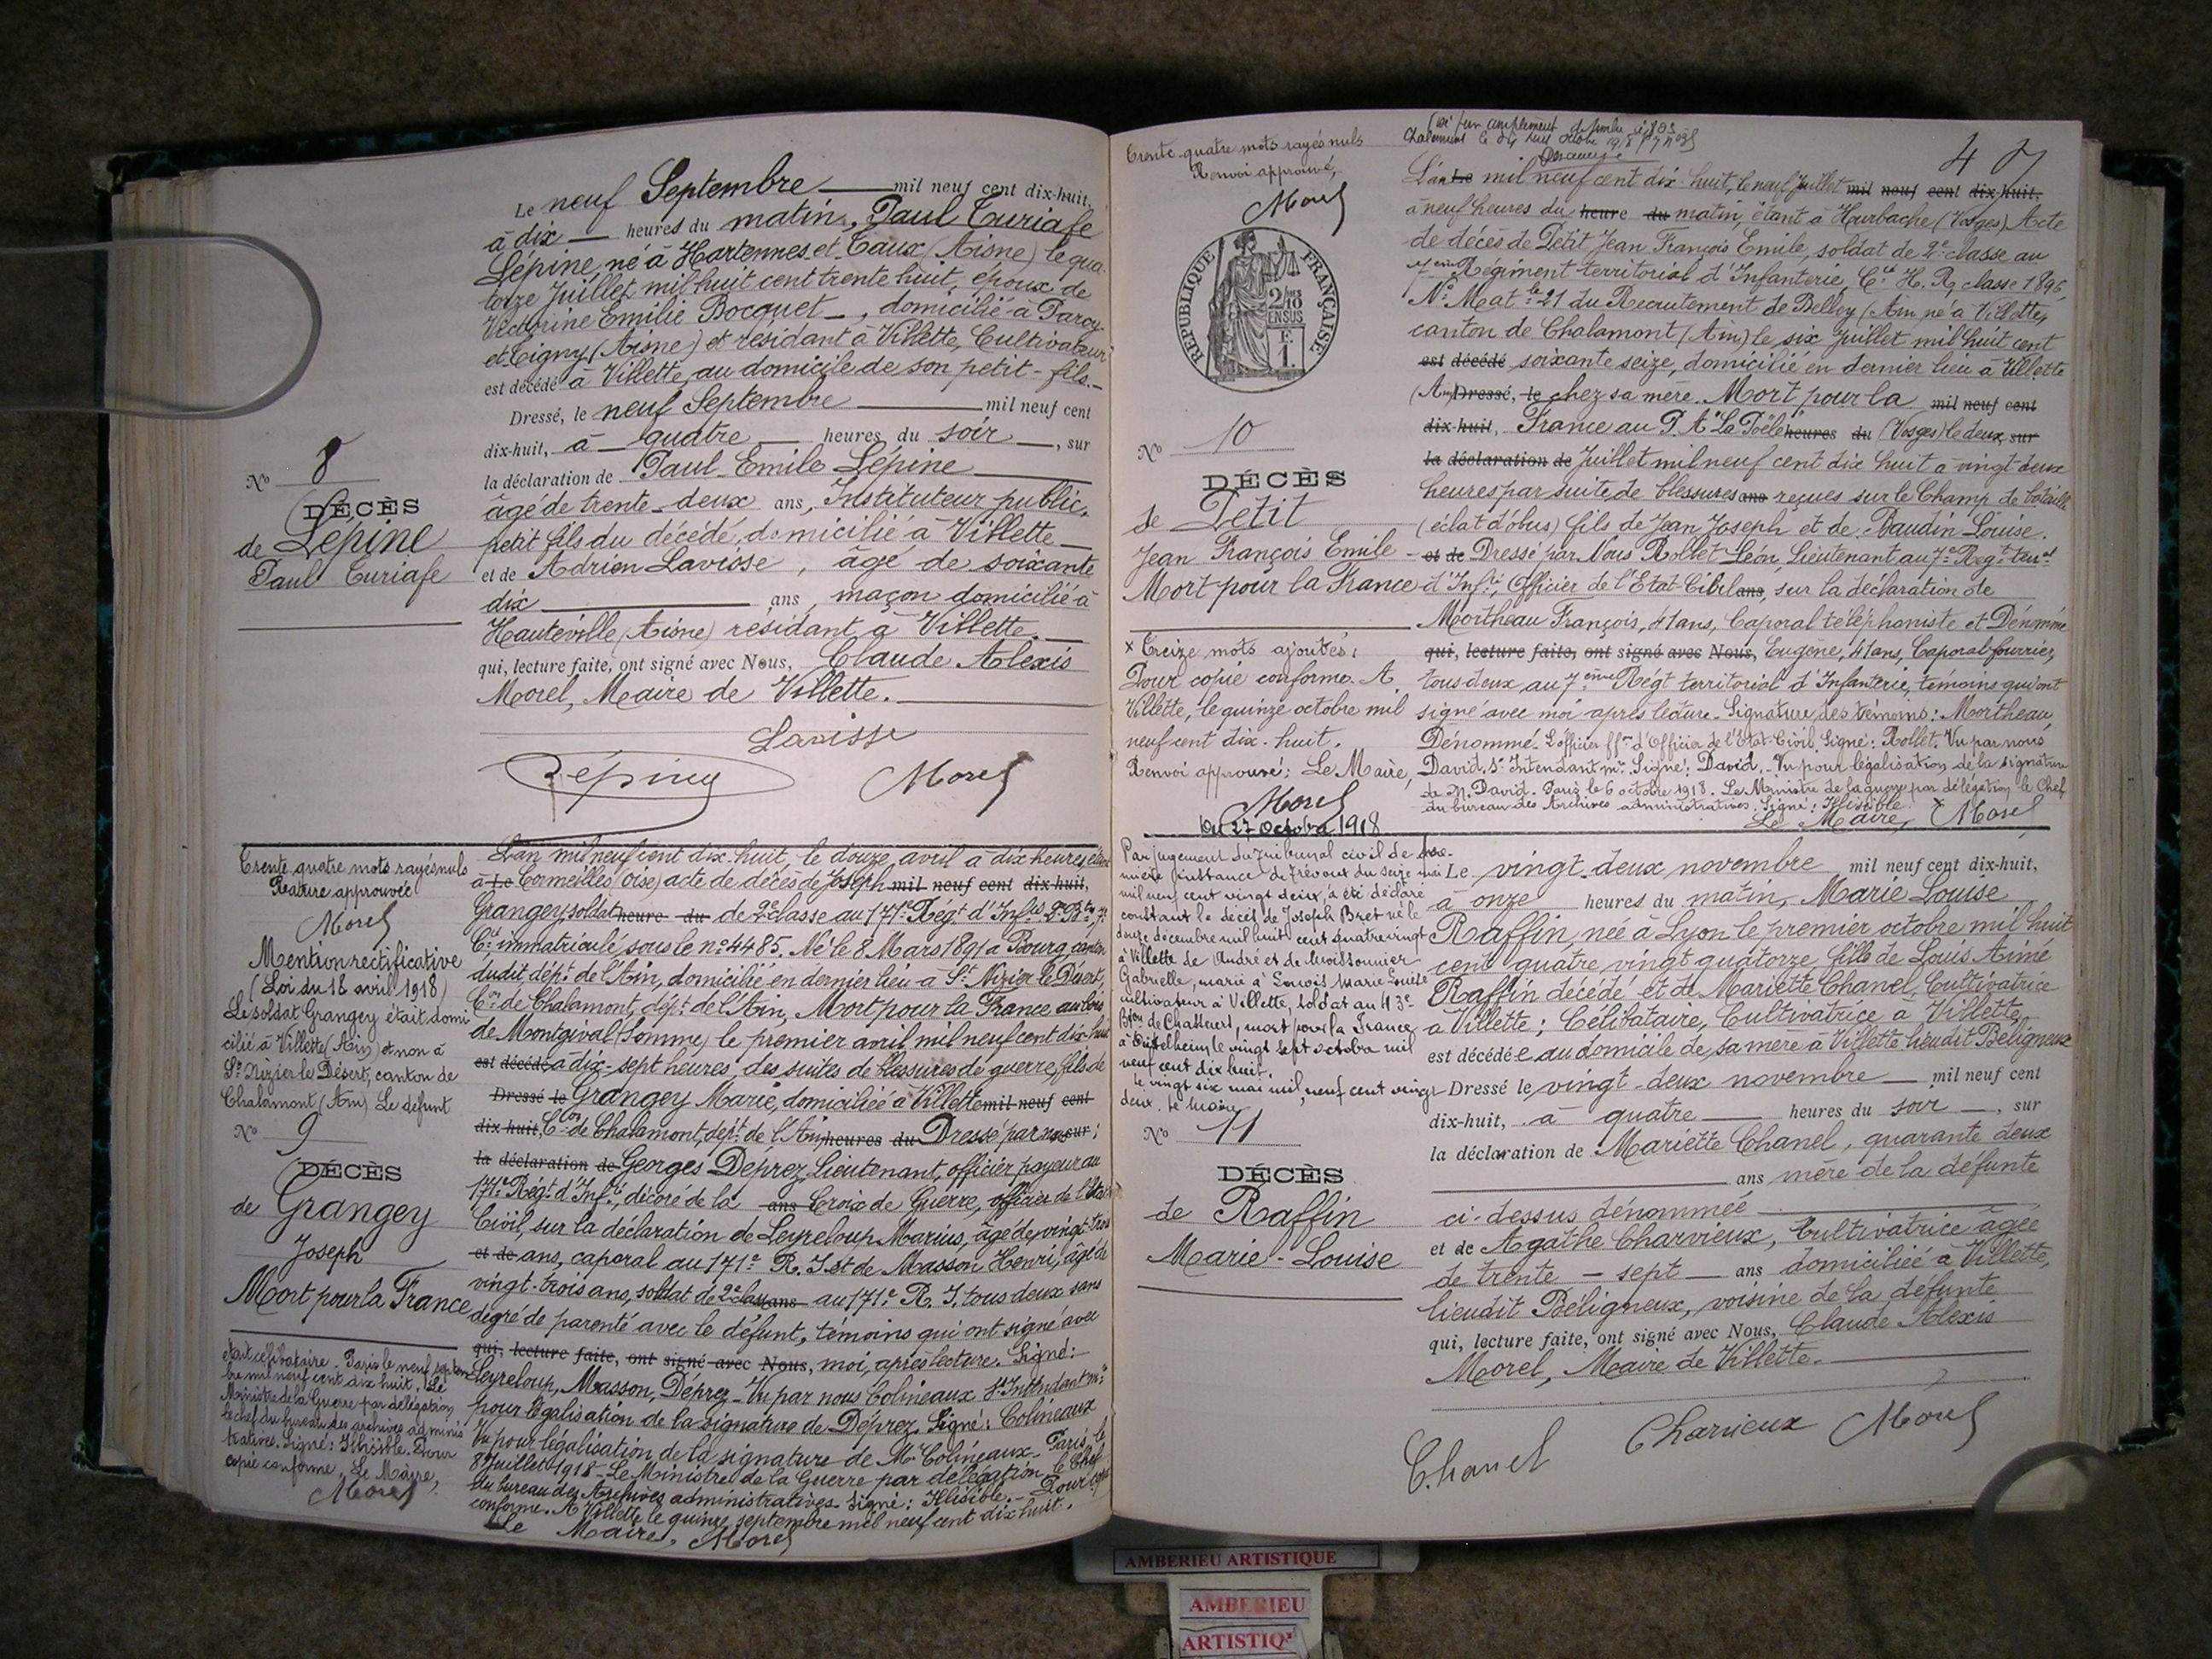 Le neuf Septembre mil neuf cent dix-huit,
à dix heures du matin, Paul Turiafe
Lépine, né à Hartennes et Taux (Aisne) le qua-
torze Juillet mil huit cent trente huit, époux de
Victorine Emilie Bocquet, domicilié à Parcy
et Tigny (Aisne) et résidant à Villette, Cultivateur
est décédé à Villette, au domicile de son petit-fils.
Dressé, le neuf Septembre mil neuf cent
dix-huit, à quatre heures du soir, sur
la déclaration de Paul Emile Lépine
âgé de trente-deux ans, Instituteur public,
petit fils du décédé, domicilié à Villette
et de Adrien Lavisse, âgé de soixante
dix ans, maçon domicilié à
Hauteville (Aisne) résidant à Villette.
qui, lecture faite, ont signé avec Nous, Claude Alexis
Morel, Maire de Villette.
Lavisse
Lépine Morel
No 8
DÉCÈS
de Lépine
Paul Turiafe
Trente quatre mots rayés nuls
Rature approuvée
Morel
Mention rectificative
(Loi du 18 avril 1918)
Le soldat Grangey était domi
cilié à Villette (Ain) et non à
St Nizier le Désert, canton de
Chalamont (Ain) Le défunt
No 9
DÉCÈS
de Grangey
Joseph
Mort pour la France
était célibataire. Paris le neuf septem
bre mil neuf cent dix huit. Le
Ministre de la Guerre par délégation
le chef du bureau des archives adminis
tratives. Signé: Illisible. Pour
copie conforme, Le Maire,
Morel
L'an mil neuf cent dix-huit, le douze avril à dix heures, étant
à Le Cormeilles (Oise) acte de décès de Joseph mil neuf cent dix-huit,
Grangey soldat heure du de 2e classe au 171e Régt d'Infie 2e Bton 7e
Cie, immatriculé sous le no 4485. Né le 8 Mars 1891 à Bourg, canton
dudit, dépt de l'Ain, domicilié en dernier lieu à St Nizier le Désert,
Con de Chalamont, dépt de l'Ain, Mort pour la France au bois
de Mongival (Somme) le premier avril mil neuf cent dix-huit
est décédé à dix-sept heures, des suites de blessures de guerre, fils de
Dressé le Grangey Marie, domiciliée à Villette mil neuf cent
dix huit, Con de Chalamont, dépt de l'Ain heures du Dressé par nous sur
la déclaration de Georges Déprez, Lieutenant, officier payeur au
171e Régt d'Infie, décoré de la ans Croix de Guerre, officier de l'Etat
Civil, sur la déclaration de Leyreloup Marius, âgé de vingt-trois
et de ans, caporal au 171e R. I. et de Masson Henri, âgé de
vingt-trois ans, soldat de 2e classe ans au 171e R. I. tous deux sans
degré de parenté avec le défunt, témoins qui ont signé avec
qui, lecture faite, ont signé avec Nous, moi, après lecture. Signé:
Leyreloup, Masson, Déprez - Vu par nous Colineaux St Intendant mre
pour légalisation de la signature de Déprez. Signé: Colineaux
Vu pour légalisation de la signature de Mr Colineaux. Paris, le
8 Juillet 1918 - Le Ministre de la Guerre par délégation, le Chef
du bureau des Archives administratives. Signé: Illisible. - Pour copie
conforme. A Villette, le quinze septembre mil neuf cent dix huit.
Le Maire, Morel
47
Trente-quatre mots rayés nuls
Renvoi approuvé,
Morel
RÉPUBLIQUE FRANÇAISE
2/10
EN SUS
F.
1.
No 10
DÉCÈS
de Petit
Jean François Emile
Mort pour la France
x Treize mots ajoutés:
Pour copie conforme. A
Villette, le quinze octobre mil
neuf cent dix-huit.
Renvoi approuvé: Le Maire,
Morel
L'an Le mil neuf cent dix-huit, le neuf Juillet mil neuf cent dix-huit,
à neuf heures du heure du matin, étant à Hurbache (Vosges) Acte
de décès de Petit Jean François Emile, soldat de 2e classe au
7ème Régiment territorial d'Infanterie, Cie H. R, classe 1896,
No Mat le 21 du Recrutement de Belley (Ain né à Villette,
canton de Chalamont (Ain) le six Juillet mil huit cent
est décédé soixante seize, domicilié en dernier lieu à Villette
(Ain) Dressé, le chez sa mère. Mort pour la mil neuf cent
dix-huit, France au P. A "La Poële" heures du (Vosges) le deux sur
la déclaration de Juillet mil neuf cent dix huit à vingt deux
heures par suite de blessures ans reçues sur le Champ de bataille
(éclat d'obus) fils de Jean Joseph et de Baudin Louise.
et de Dressé par Nous Rollet Léon, Lieutenant au 7e Regt terral
d'Infie, Officier de l'Etat-Civil ans, sur la déclaration de
Mortheau François, 41 ans, Caporal téléphoniste et Dénommé
qui, lecture faite, ont signé avec Nous, Eugène, 41 ans, Caporal-fourrier,
tous deux au 7ème Régt territorial d'Infanterie, témoins qui ont
signé avec moi après lecture. Signature des témoins: Mortheau,
Dénommé. L'officier ffons d'Officier de l'Etat-Civil. Signé: Rollet. Vu par nous
David, St Intendant mre Signé: David. - Vu pour légalisation de la signature
de M. David. Paris le 6 octobre 1918. Le Ministre de la guerre par délégation le Chef
du bureau des Archives administratives. Signé: Illisible. x
Le Maire, Morel
Du 27 Octobre 1918
Par jugement du tribunal civil de pre-
mière instance de Trévoux du seize mai
mil neuf cent vingt deux, a été déclaré
constant le décès de Joseph Bret né le
douze décembre mil huit cent quatre vingt
à Villette de André et de Moissonnier
Gabrielle, marié à Marie Louise
cultivateur à Villette, soldat au 43e
Bton de Chasseurs, mort pour la France
le vingt sept octobre mil
neuf cent dix huit.
Le vingt six mai mil neuf cent vingt
deux. Le Maire
No 11
DÉCÈS
de Raffin
Marie-Louise
Le vingt-deux novembre mil neuf cent dix-huit,
à onze heures du matin, Marie Louise
Raffin, née à Lyon le premier octobre mil huit
cent quatre vingt quatorze, fille de Louis Aimé
Raffin décédé et de Mariette Chanel, Cultivatrice
à Villette; Célibataire, Cultivatrice à Villette,
est décédée au domicile de sa mère à Villette lieudit Béligneux
Dressé le vingt-deux novembre mil neuf cent
dix-huit, à quatre heures du soir, sur
la déclaration de Mariette Chanel, quarante deux
ans mère de la défunte
ci-dessus dénommée
et de Agathe Charvieux, Cultivatrice âgée
de trente-sept ans domiciliée à Villette,
lieudit Béligneux, voisine de la défunte
qui, lecture faite, ont signé avec Nous, Claude Alexis
Morel, Maire de Villette.
Chanel Charvieux Morel
AMBERIEU ARTISTIQUE
AMBERIEU
ARTISTIQ